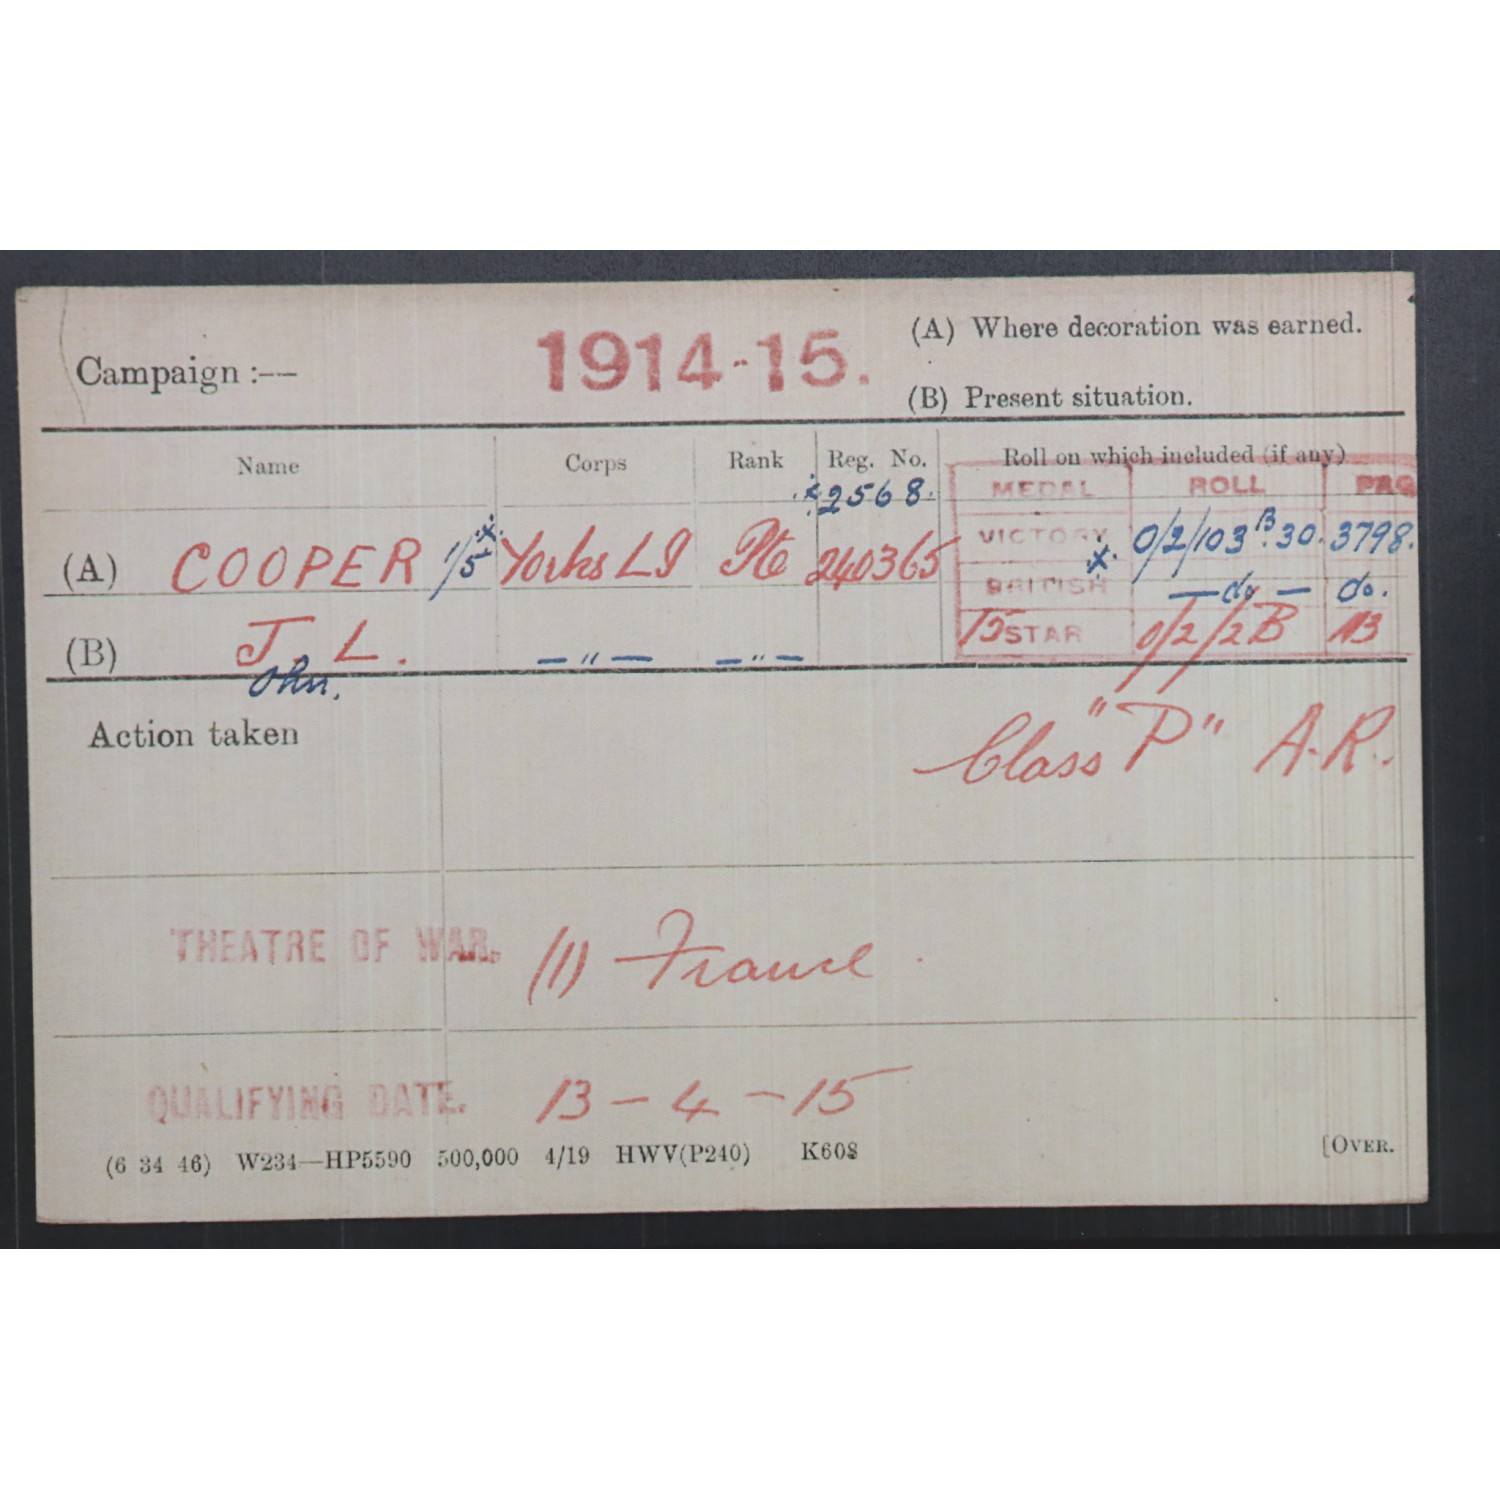 Campaign :—— 1914-15. (A) Where decoration was earned.
(B) Present situation.
Name Corps Rank Reg. No. Roll on which included (if any)
x 2568. MEDAL ROLL PAG
(A) COOPER 1/5 x Yorks L I Pte 240365 VICTORY x 0/2/103 B. 30. 3798.
BRITISH — do — do.
(B) J. L. — " — — " — 15 STAR 0/2/2B 113
ohn.
Action taken Class "P" A.R.
THEATRE OF WAR. (1) France
QUALIFYING DATE. 13 - 4 - 15
(6 34 46) W234—HP5590 500,000 4/19 HWV(P240) K608 [OVER.